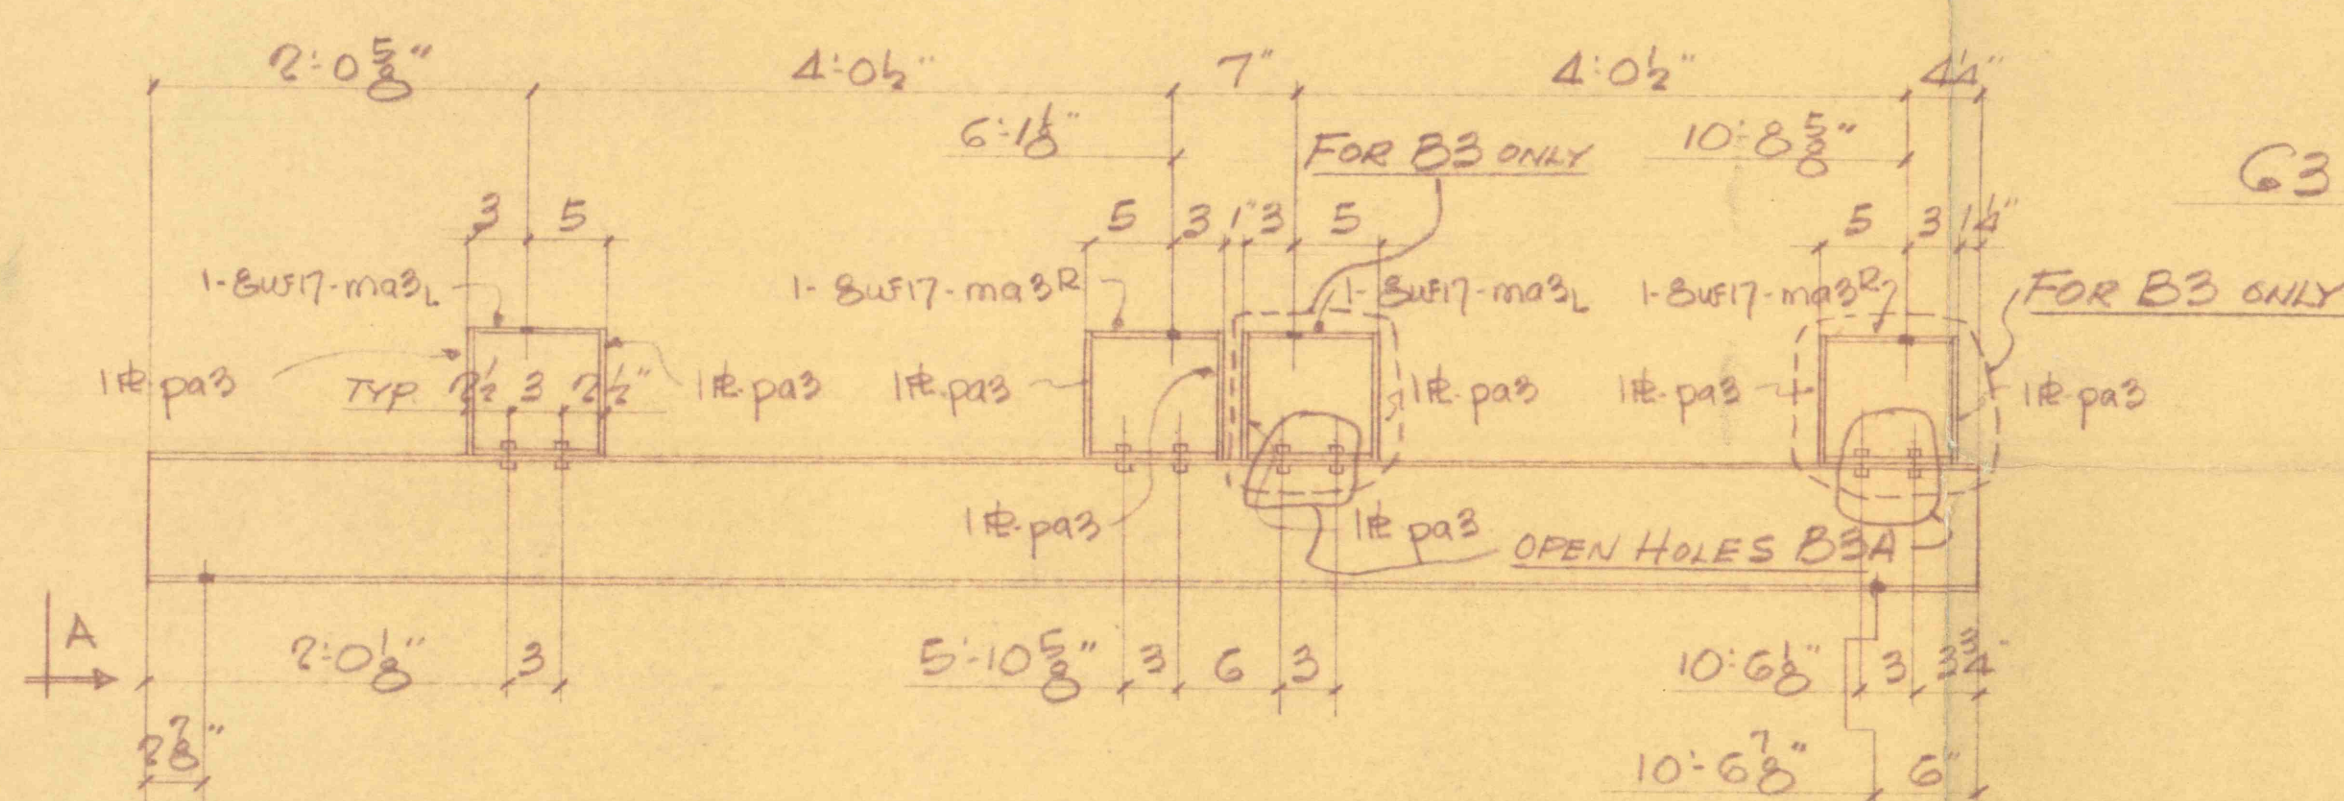 2'-0 5/8" 4'-0 1/2" 7" 4'-0 1/2" 4 1/4"
6'-1 1/8" FOR B3 ONLY 10'-8 5/8" 63
3 5 5 3 1" 3 5 5 3 1 1/4"
1-8WF17-ma3L 1-8WF17-ma3R 1-8WF17-ma3L 1-8WF17-ma3R FOR B3 ONLY
1 PL pa3 TYP. 2 1/2 3 2 1/2" 1 PL pa3 1 PL pa3 1 PL pa3 1 PL pa3 1 PL pa3
1 PL pa3 1 PL pa3 OPEN HOLES B3A
A 2'-0 1/8" 3 5'-10 5/8" 3 6 3 10'-6 1/8" 3 3 3/4"
10'-6 7/8" 6"